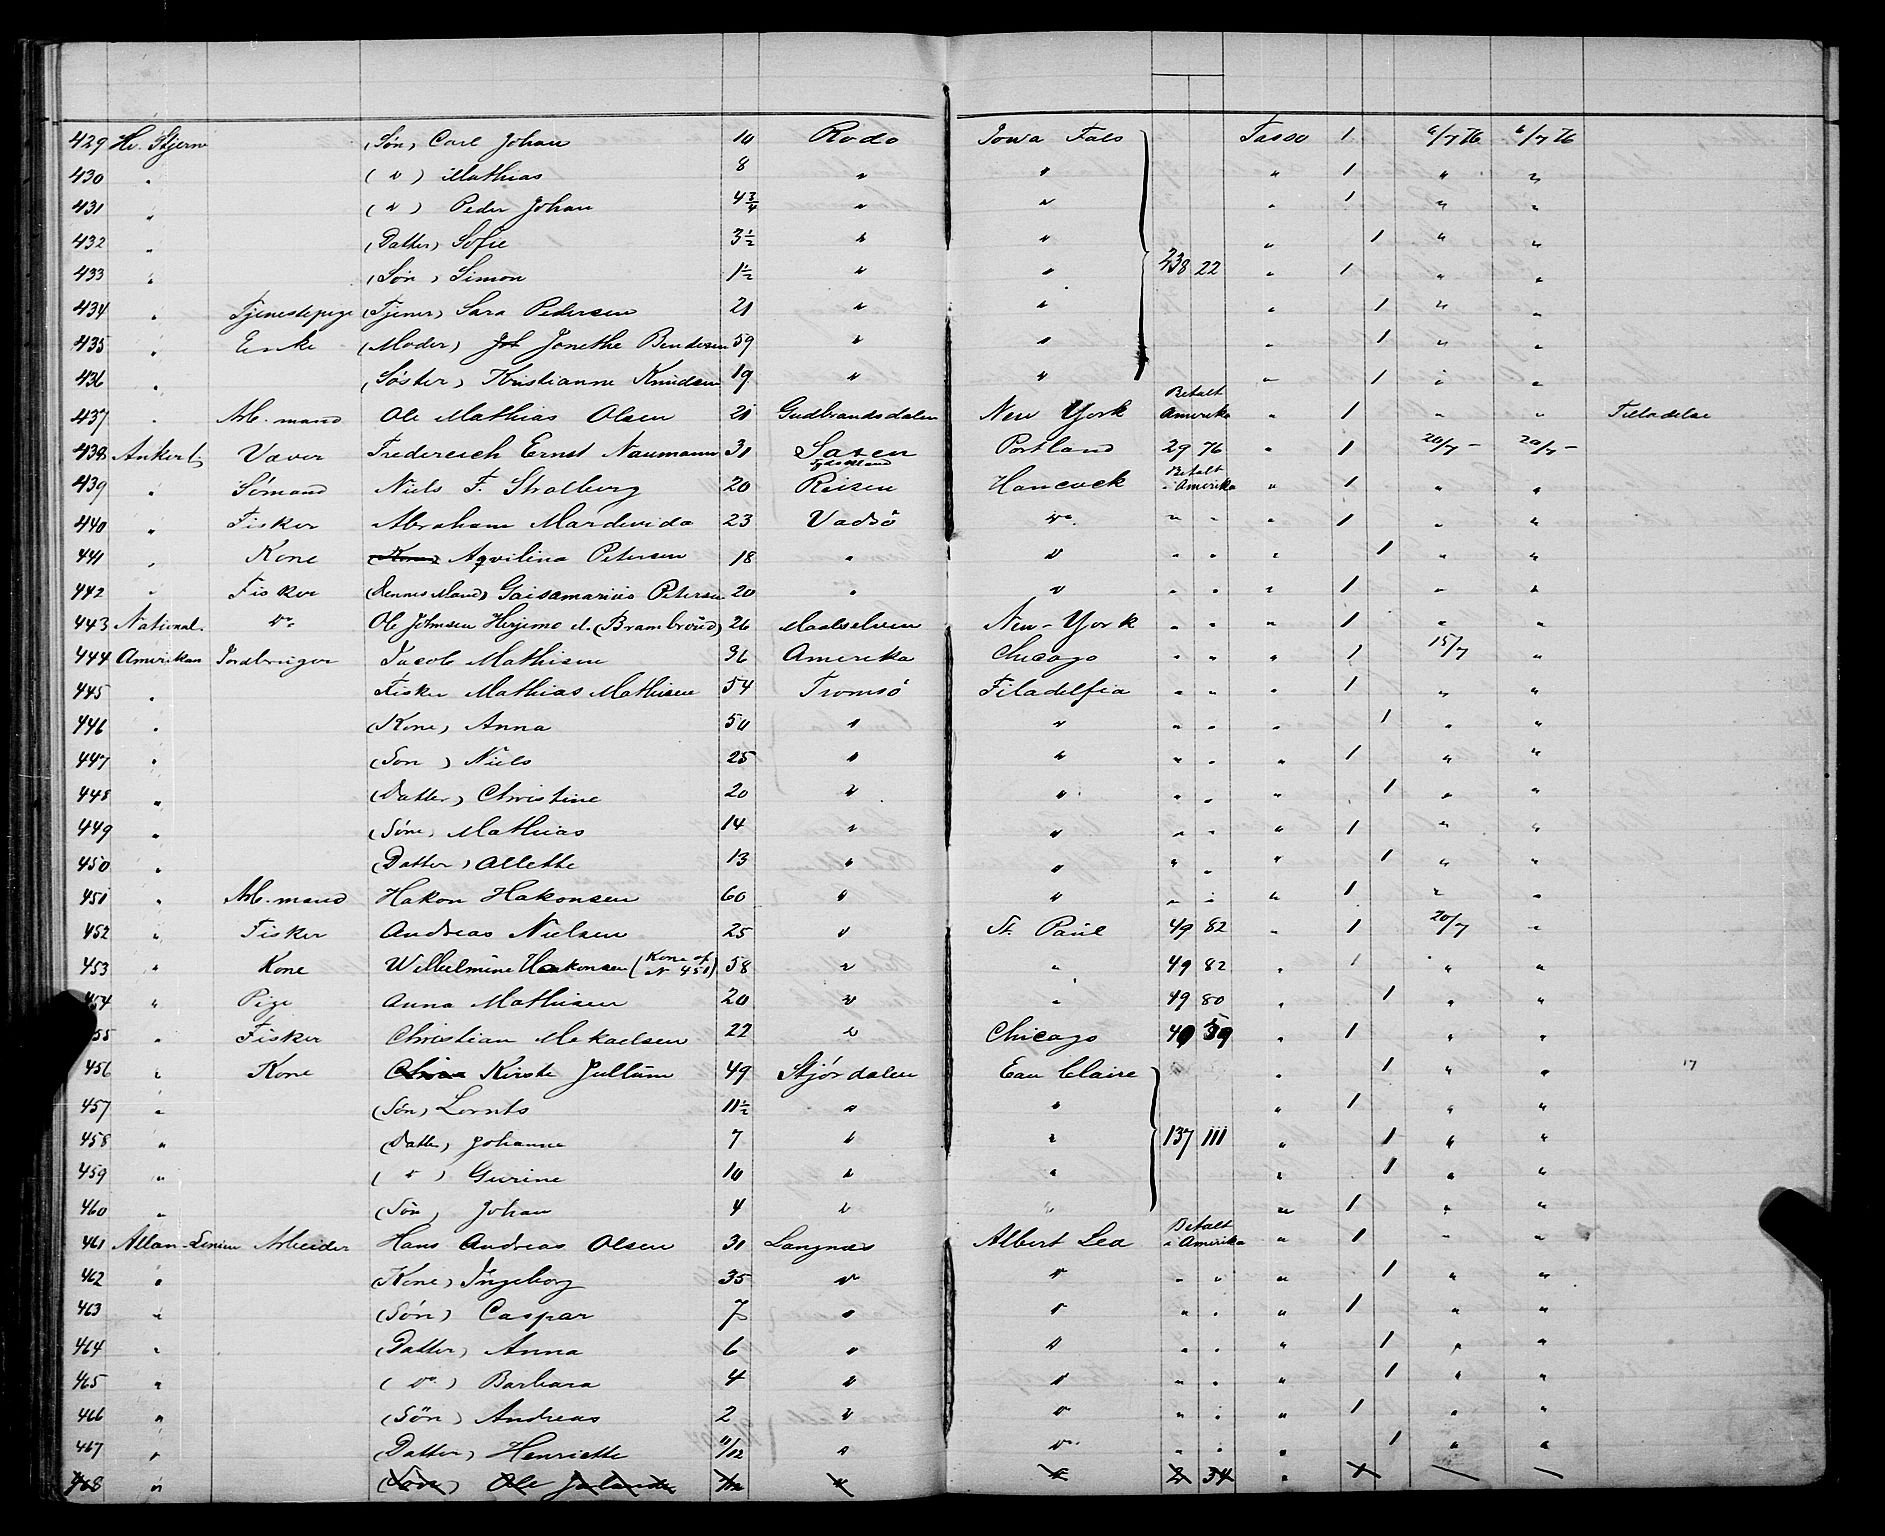 429 Hv. Stjerne (Søn) Carl Johan 10 Rodø Iowa Fals Tasso 1 6/7 76 6/7 76
430 " (") Mathias 8 " " " 1 " "
431 " (") Peder Johan 4 3/4 " " " 1 " "
432 " (Datter) Sofie 3 1/2 " " " 1 " "
433 " (Søn) Simon 1 1/2 " " 238 22 " 1 " "
434 " Tjenestepige (Tjener) Sara Pedersen 21 " " " 1 " "
435 " Enke (Moder) Jonethe Bendersen 59 " " " 1 " "
436 " (Søster) Kristianne Knudsen 19 " " " 1 " "
437 " Arb. mand Ole Mathias Olsen 21 Gudbrandsdalen New York Betalt Amerika " 1 " " Tilladelse
438 Ankerl. Væver Frederich Ernst Naumann 31 Saxen Tydskland Portland 29 76 " 1 20/7 - 20/7 -
439 " Sømand Niels F. Stralberg 20 Reisen Hancock Betalt i Amerika " 1 " "
440 " Fisker Abraham Mardevida 23 Vadsø do " " " 1 " "
441 " Kone (Kone) Aqvilina Petersen 18 " " " " " 1 " "
442 " Fisker (Hennes Mand) Gaisamarius Petersen 20 " " " " " 1 " "
443 National. do Ole Johnsen Herjemo el. (Brambroüd) 26 Maalselven New-York " " " 1 " "
444 Amerikan Jordbruger Jacob Mathisen 36 Amerika Chicago " " " 1 15/7 "
445 " Fisker Mathias Mathisen 54 Tromsø Filadelfia " " " 1 " "
446 " (Kone) Anna 50 " " " " " 1 " "
447 " (Søn) Niels 25 " " " " " 1 " "
448 " (Datter) Christine 20 " " " " " 1 " "
449 " (Søn) Mathias 14 " " " " " 1 " "
450 " (Datter) Allette 13 " " " " " 1 " "
451 " Arb. mand Hakon Hakonsen 60 " " " " " 1 " "
452 " Fisker Andreas Nielsen 25 " St. Paul 49 82 " 1 20/7 "
453 " Kone Wilhelmine Hakonsen (Kone af N 451) 58 " " 49 82 " 1 " "
454 " Pige Anna Mathisen 20 " " 49 80 " 1 " "
455 " Fisker Christian Mekaelsen 22 " Chicago " 1 " "
456 " Kone Kirste Jullum 49 Stjørdalen Eau Claire " 1 " " 17
457 " (Søn) Lornts 11 1/2 " " " 1 " "
458 " (Datter) Johanne 7 " " 137 111 " 1 " "
459 " (") Gurine 10 " " " 1 " "
460 " (Søn) Johan 4 " " " 1 " "
461 Allan-Linien Arbeider Hans Andreas Olsen 31 Langnæs Albert Lea Betalt i Amerika " 1 " "
462 " (Kone) Ingeborg 35 " " " " " 1 " "
463 " (Søn) Caspar 7 " " " " " 1 " "
464 " (Datter) Anna 6 " " " " " 1 " "
465 " (do) Barbara 4 " " " " " 1 " "
466 " (Søn) Andreas 2 " " " " " 1 " "
467 " (Datter) Henriette 11/12 " do " " " 1 " "
468 " (Søn) Ole " " 2 34 " 1 — —